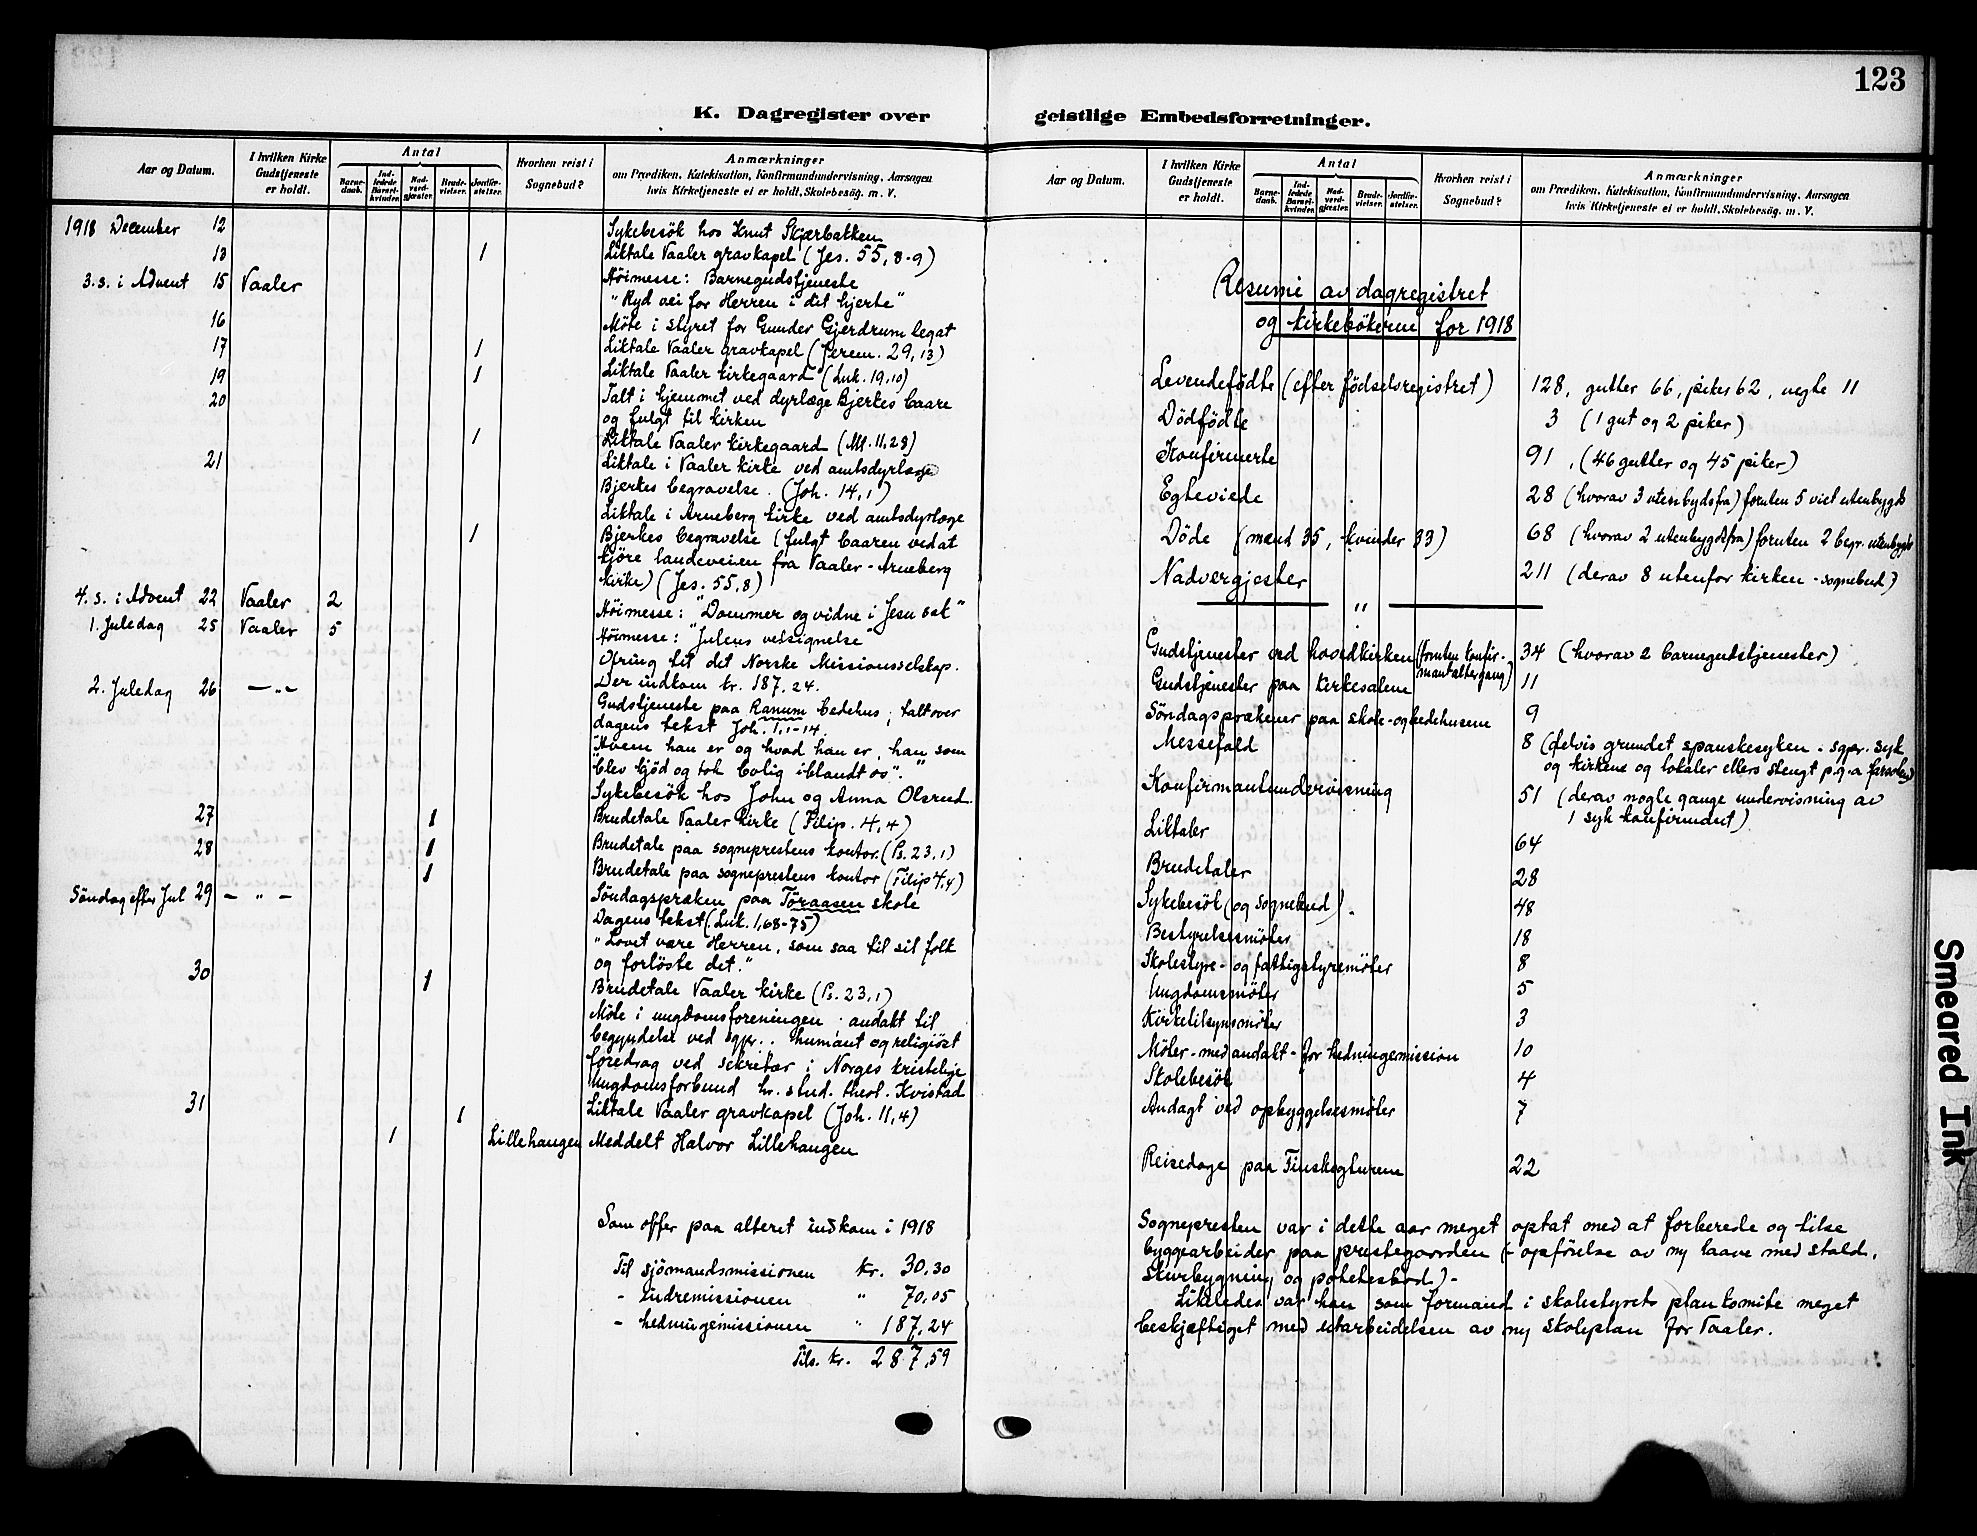 123
K. Dagregister over geistlige Embedsforretninger.
Aar og Datum.
I hvilken Kirke Gudstjeneste er holdt.
Antal
Barnedaab.
Indledede Barselkvinder.
Nadverdgjester.
Brudevielser.
Jordfæstelser.
Hvorhen reist i Sognebud?
Anmærkninger
om Prædiken, Katekisation, Konfirmandundervisning, Aarsagen
hvis Kirketjeneste ei er holdt, Skolebesøg. m. V.
1918 December 12 Sykebesök hos Knut Skjærbakken
13 1 Liktale Vaaler gravkapel (Jes. 55, 8-9)
3. s. i Advent 15 Vaaler Höimesse: Barnegudstjeneste
"Ryd vei for Herren i dit hjerte"
16 Möte i styret for Gunder Gjerdrum legat
17 1 Liktale Vaaler gravkapel (Jerem. 29, 13)
19 1 Liktale Vaaler kirkegaard (Luk. 19,10)
20 Talt i hjemmet ved dyrlæge Bjerkes baare
og fulgt til kirken
1 Liktale Vaaler kirkegaard (Mt. 11,28)
21 Liktale i Vaaler kirke ved amtsdyrlæge
Bjerkes begravelse. (Joh. 14,1)
Liktale i Arneberg kirke ved amtsdyrlæge
1 Bjerkes begravelse (fulgt baaren ved at
kjöre landeveien fra Vaaler - Arneberg
kirke) (Jes. 55,8)
4. s. i Advent 22 Vaaler 2 Höimesse: "Dommer og vidne i Jesu sak"
1. Juledag 25 Vaaler 5 Höimesse: "Julens velsignelse"
Ofring til det Norske Missionsselskap.
Der indkom kr. 187.24.
2. Juledag 26 — " — Gudstjeneste paa Ranum bedehus; talt over
dagens tekst Joh. 1,1-14.
"Hvem han er og hvad han er, han som
blev kjöd og tok bolig iblandt os"."
Sykebesök hos John og Anna Olsrud.
27 1 Brudetale Vaaler kirke (Filip. 4,4)
28 1 Brudetale paa sogneprestens kontor. (Ps. 23,1)
1 Brudetale paa sogneprestens kontor (Filip 4,4)
Söndag efter Jul 29 — " — Söndagspræken paa Töraasen skole
Dagens tekst (Luk. 1,68-75)
"Lovet være Herren, som saa til sit folk
og forlöste det."
30 1 Brudetale Vaaler kirke (Ps. 23,1)
Möte i ungdomsforeningen; andakt til
begyndelse ved sgpr.. humant og religiöst
foredrag ved sekretær i Norges kristelige
Ungdomsforbund hr. stud. theol. Kvistad
31 1 Liktale Vaaler gravkapel (Joh. 11,4)
1 Lillehaugen Meddelt Halvor Lillehaugen
Som offer paa alteret indkom i 1918
Til sjömandsmissionen kr. 30.30
- indremissionen " 70.05
- hedningemissionen " 187.24
Tils. kr. 287,59
Aar og Datum.
I hvilken Kirke Gudstjeneste er holdt.
Antal
Barnedaab.
Indledede Barselkvinder.
Nadverdgjester.
Brudevielser.
Jordfæstelser.
Hvorhen reist i Sognebud?
Anmærkninger
om Prædiken, Katekisation, Konfirmandundervisning, Aarsagen
hvis Kirketjeneste ei er holdt, Skolebesøg. m. V.
Resumé av dagregistret
og kirkebökerne for 1918
Levendefödte (efter födselsregistret) 128, gutter 66, piker 62, uegte 11
Dödfödte 3 (1 gut og 2 piker)
Konfirmerte 91, (46 gutter og 45 piker)
Egteviede 28 (hvorav 3 utenbygdsfra) foruten 5 viet utenbygds
Döde (mænd 35, kvinder 33) 68 (hvorav 2 utenbygdsfra) foruten 2 begr. utenbygds
Nadvergjester 211 (derav 8 utenfor kirken - sognebud)
"
Gudstjenester ved hovedkirken (foruten konfirmantaltergang) 34 (hvorav 2 barnegudstjenester)
Gudstjenester paa kirkesalene 11
Söndagsprækener paa skole- og bedehusene 9
Messefald 8 (delvis grundet spanskesyken - sgpr. syk
og kirkene og lokaler ellers stengt p.g.a
Konfirmantundervisning 51 (derav nogle gange undervisning av
1 syk konfirmant)
Liktaler 64
Brudetaler 28
Sykebesök (og sognebud). 48
Bestyrelsesmöter 18
Skolestyre- og fattigstyremöter 8
Ungdomsmöter 5
Kirketilsynsmöter 3
Möter - med andakt - for hedningemission 10
Skolebesök 4
Andagt ved opbyggelsesmöter 7
Reisedage paa Finskogturene 22
Sognepresten var i dette aar meget optat med at forberede og tilse
byggearbeider paa prestegaarden (- opförelse av ny laave med stald,
skurbygning og potetesbod) -
Likeledes var han som formand i skolestyrets plankomite meget
beskjæftiget med utarbeidelsen av ny skoleplan for Vaaler.
Smeared Ink